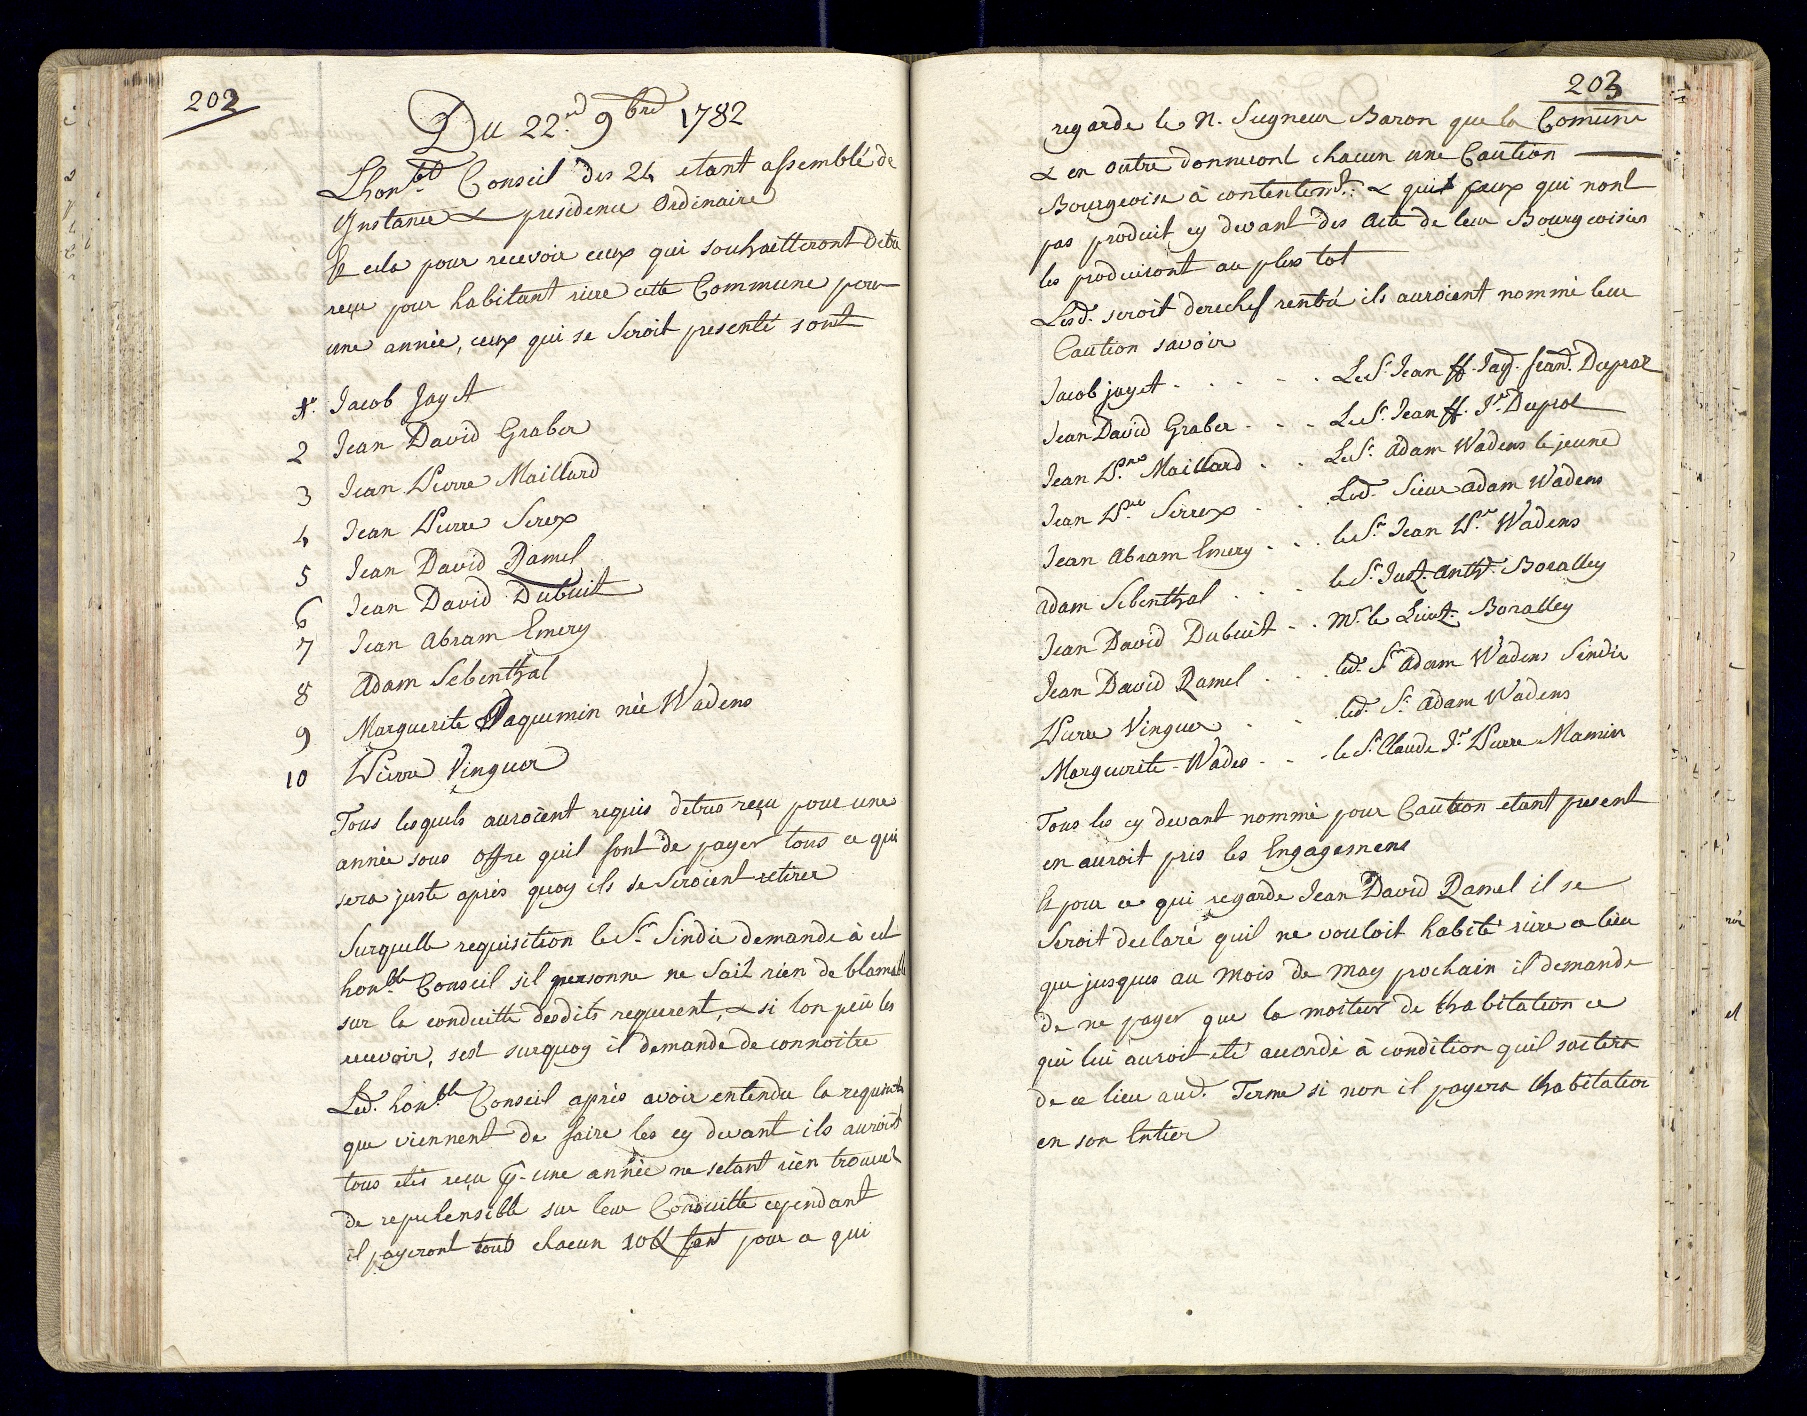 202
Du 22.e 9bre 1782
L'hon.ble Conseil des 24 etant assemblé de
Instance & presidence Ordinaire
Et cela pour recevoir ceux qui souhaitteront detre
reçu pour habitant riere cette Commune pour
une année, ceux qui se seroit presenté sont
1.r Jacob Jayet
2 Jean David Graber
3 Jean Pierre Maillard
4 Jean Pierre Serex
5 Jean David Ramel
6 Jean David Dubuit
7 Jean Abram Emery
8 Adam Sebenthal
9 Marguerite Jaquemin née Wadens
10 Pierre Vinguer
Tous lesquels auroient requis detres reçu pour une
année sous offre quil font de payer tous ce qui
sera juste aprés quoy ils se seroient retirer
Surquelle requisition le S.r Sindic demande à cet
hon.ble Conseil sil personne ne sait rien de blamable
sur la conduitte desdits requerent, & si lon peu les
recevoir, sest surquoy il demande de connoitre
Led. hon.ble Conseil aprés avoir entendu la requisition
que viennent de faire les cy devant ils auroint
tous étés reçu p. une année ne setant rien trouvez
de reprehensible sur leur Conduitte cependant
il payeront tous chacun 10 tant pour ce qui
203
regarde le N. Seigneur Baron que la Comune
& en outre donneront chacun une Caution
Bourgeoise à contentem.t & quit ceux qui nont
pas produit cy devant des Acte de leur Bourgeoisies
les produiront au plus tot
Lesd. seroit derechef rentré ils auroient nommé leur
Caution savoir
Jacob jayet . . . . . Le S.r Jean ff. Jaq. feand. Duproz
Jean David Graber . . . Le S.r Jean ff. J.r Duproz
Jean P.re Maillard . . Le S.r Adam Wadens le jeune
Jean P.re Serrex . . Led. Sieur Adam Wadens
Jean Abram Emery . . . le S.r Jean P.r Wadens
Adam Sebenthal . . . le S.r Just. Anth. Boralley
Jean David Dubuit . . M.r le Lieut. Boralley
Jean David Ramel . . . led. S.r Adam Wadens Sindic
Pierre Vinguer . . led. S.r Adam Wadens
Marguerite Wades . . . le S.r Claude J.r Pierre Mamin
Tous les cy devant nommé pour Caution etant present
en auroit pris les Engagemens
Et pour ce qui regarde Jean David Ramel il se
seroit declaré quil ne vouloit habité riere ce lieu
que jusques au Mois de May prochain il demande
de ne payer que la moiteur de lhabitation ce
qui lui auroit eté accordé à condition quil sortira
de ce lieu aud. Terme si non il payera lhabitation
en son Entier